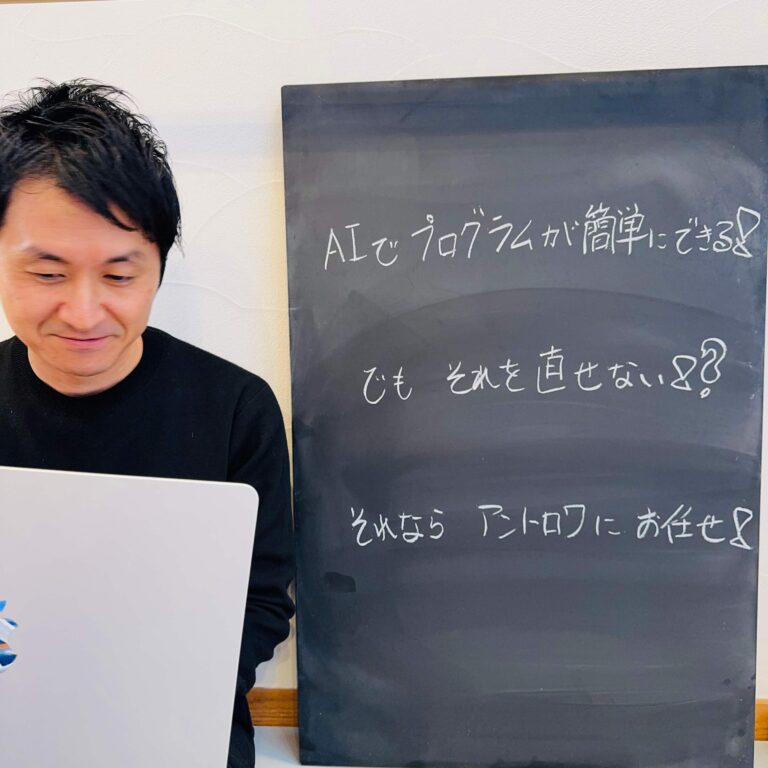 AIでプログラムが簡単にできる!
でも それを直せない!?
それなら アントロワに お任せ!